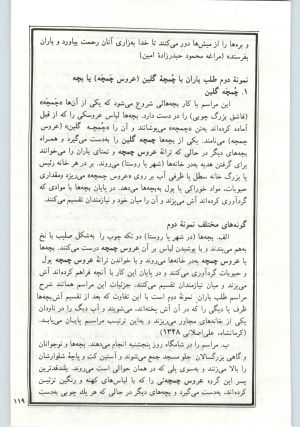 و بره‌ها را از میش‌ها دور می‌کنند تا خدا به‌زاری آنان رحمت بیاورد و باران
بفرستد» (مراغه محمود حیدرزادهٔ امین)
نمونهٔ دوم طلب باران با چُمچهٔ گلین (عروس چمچه) یا بچه
۱. چُمچهٔ گلین
این مراسم با کار بچه‌هائی شروع می‌شود که یکی از آن‌ها «چَمچَه»
(قاشق بزرگ چوبی) را در دست دارد. بچه‌ها لباس عروسکی را که از قبل
آماده کرده‌اند به‌تن «چمچه» می‌پوشانند و آن را «چُمچه گلین» (عروس
چمچه) می‌نامند. یکی از بچه‌ها چمچه گلین را به‌دست می‌گیرد و همراه
بچه‌های دیگر در حالی که ترانهٔ عروس چمچه و تمنای باران را می‌خوانند
برای گرفتن هدیه به‌در خانه‌ها (شهر یا روستا) می‌روند. بر در هر خانه رئیس
یا بزرگ خانه سطل یا ظرفی آب بر روی «عروس چمچه» می‌ریزد ومقداری
حبوبات، مواد خوراکی یا پول به‌بچه‌ها می‌دهد. در پایان بچه‌ها با موادی که
گردآوری کرده‌اند آش می‌پزند و آن را میان خود و نیازمندان تقسیم می‌کنند.
گونه‌های مختلف نمونهٔ دوم
الف. بچه‌ها (در شهر یا روستا) دو تکه چوب را به‌شکل صلیب با نخ
به‌هم می‌بندند و با پوشیدن لباس بر آن عروس چمچه درست می‌کنند. بچه‌ها
با عروس چمچه به‌در خانه‌ها می‌روند و با خواندن ترانهٔ عروس چمچه پول
و حبوبات گردآوری می‌کنند و در پایان این کار با آنچه فراهم کرده‌اند آش
می‌پزند و میان نیازمندان تقسیم می‌کنند. جزئیات این مراسم همانند شرح
مراسم طلب باران نمونهٔ دوم است با این تفاوت که بعد از تقسیم آش‌بچه‌ها
ظرف یا دیگی را که در آن آش پخته‌اند، می‌شویند و آب دیگ را در ناودان
یکی از خانه‌های مجاور می‌ریزند و به‌این ترتیب مراسم پایان می‌یابد.
(کرمانشاه، علی‌اصلانی ۱۳۴۸)
ب. مراسم را در شامگاه روز پنجشنبه انجام می‌دهند. بچه‌ها و نوجوانان
و گاهی بزرگسالان جلو مسجد جمع می‌شوند و آستین کت و پاچهٔ شلوارشان
را بالا می‌زنند و به‌سوی پلی که در همان حوالی است می‌روند. بلندقدترین
پسر این گروه عروس چمچه‌ئی را که با لباس‌های کهنه و رنگین تزئین
کرده‌اند، به‌دست می‌گیرد و بچه‌های دیگر در حالی که هر یك چوبی به‌دست
۱۱۹